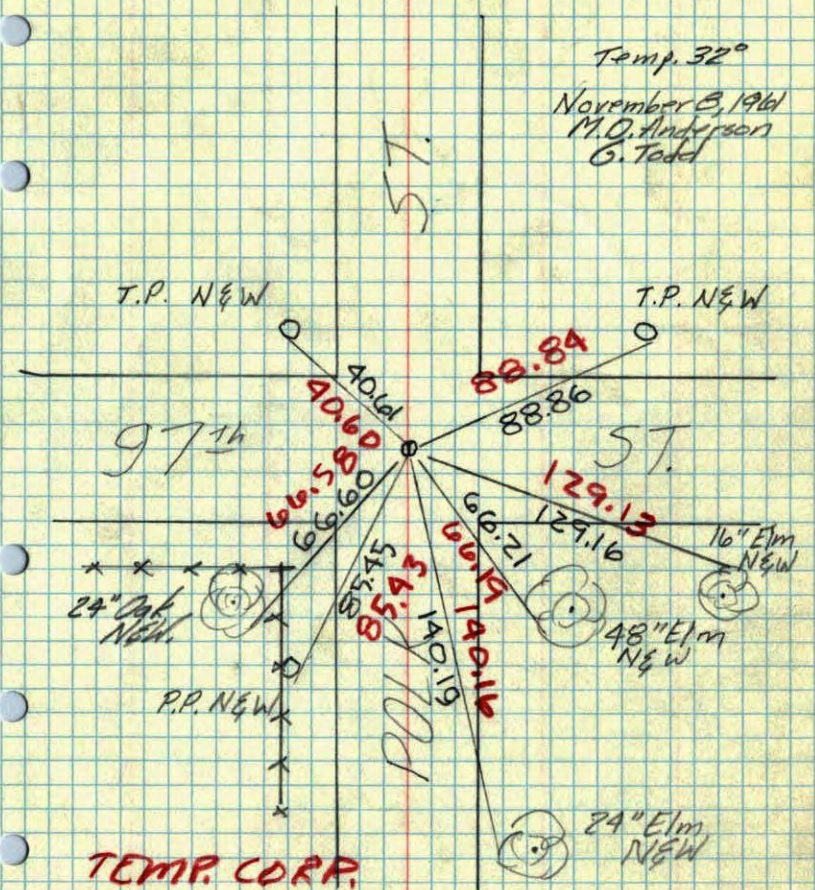 Temp. 32°
November 8, 1961
M.O. Anderson
G. Todd
ST.
T.P. N&W
T.P. N&W
40.61
40.60
88.84
88.86
97th
ST.
66.58
66.60
129.13
129.16
16" Elm
N&W
85.45
85.43
66.21
66.19
24" Oak
N&W.
48" Elm
N&W
140.19
140.16
P.P. N&W
POLK
24" Elm
N&W
TEMP. CORR.